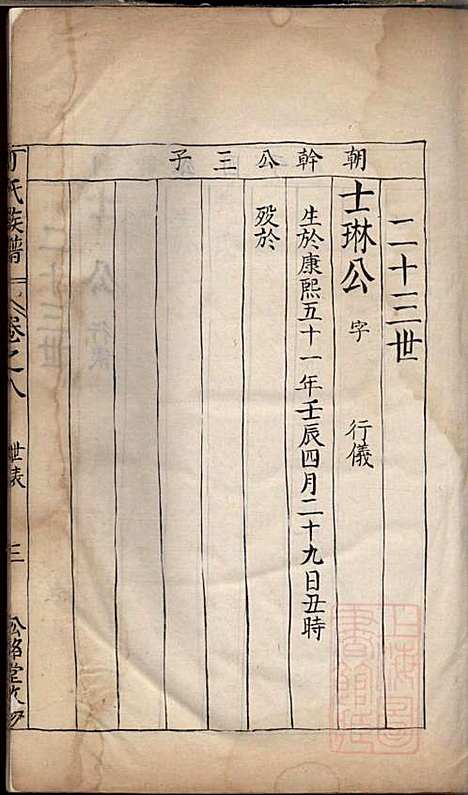 朝幹公三子
二十三世
士琳公 字 行儀
生於康熙五十一年壬辰四月二十九日丑時
歿於
丁氏族譜 卷之八 世表 三
上海圖書館藏